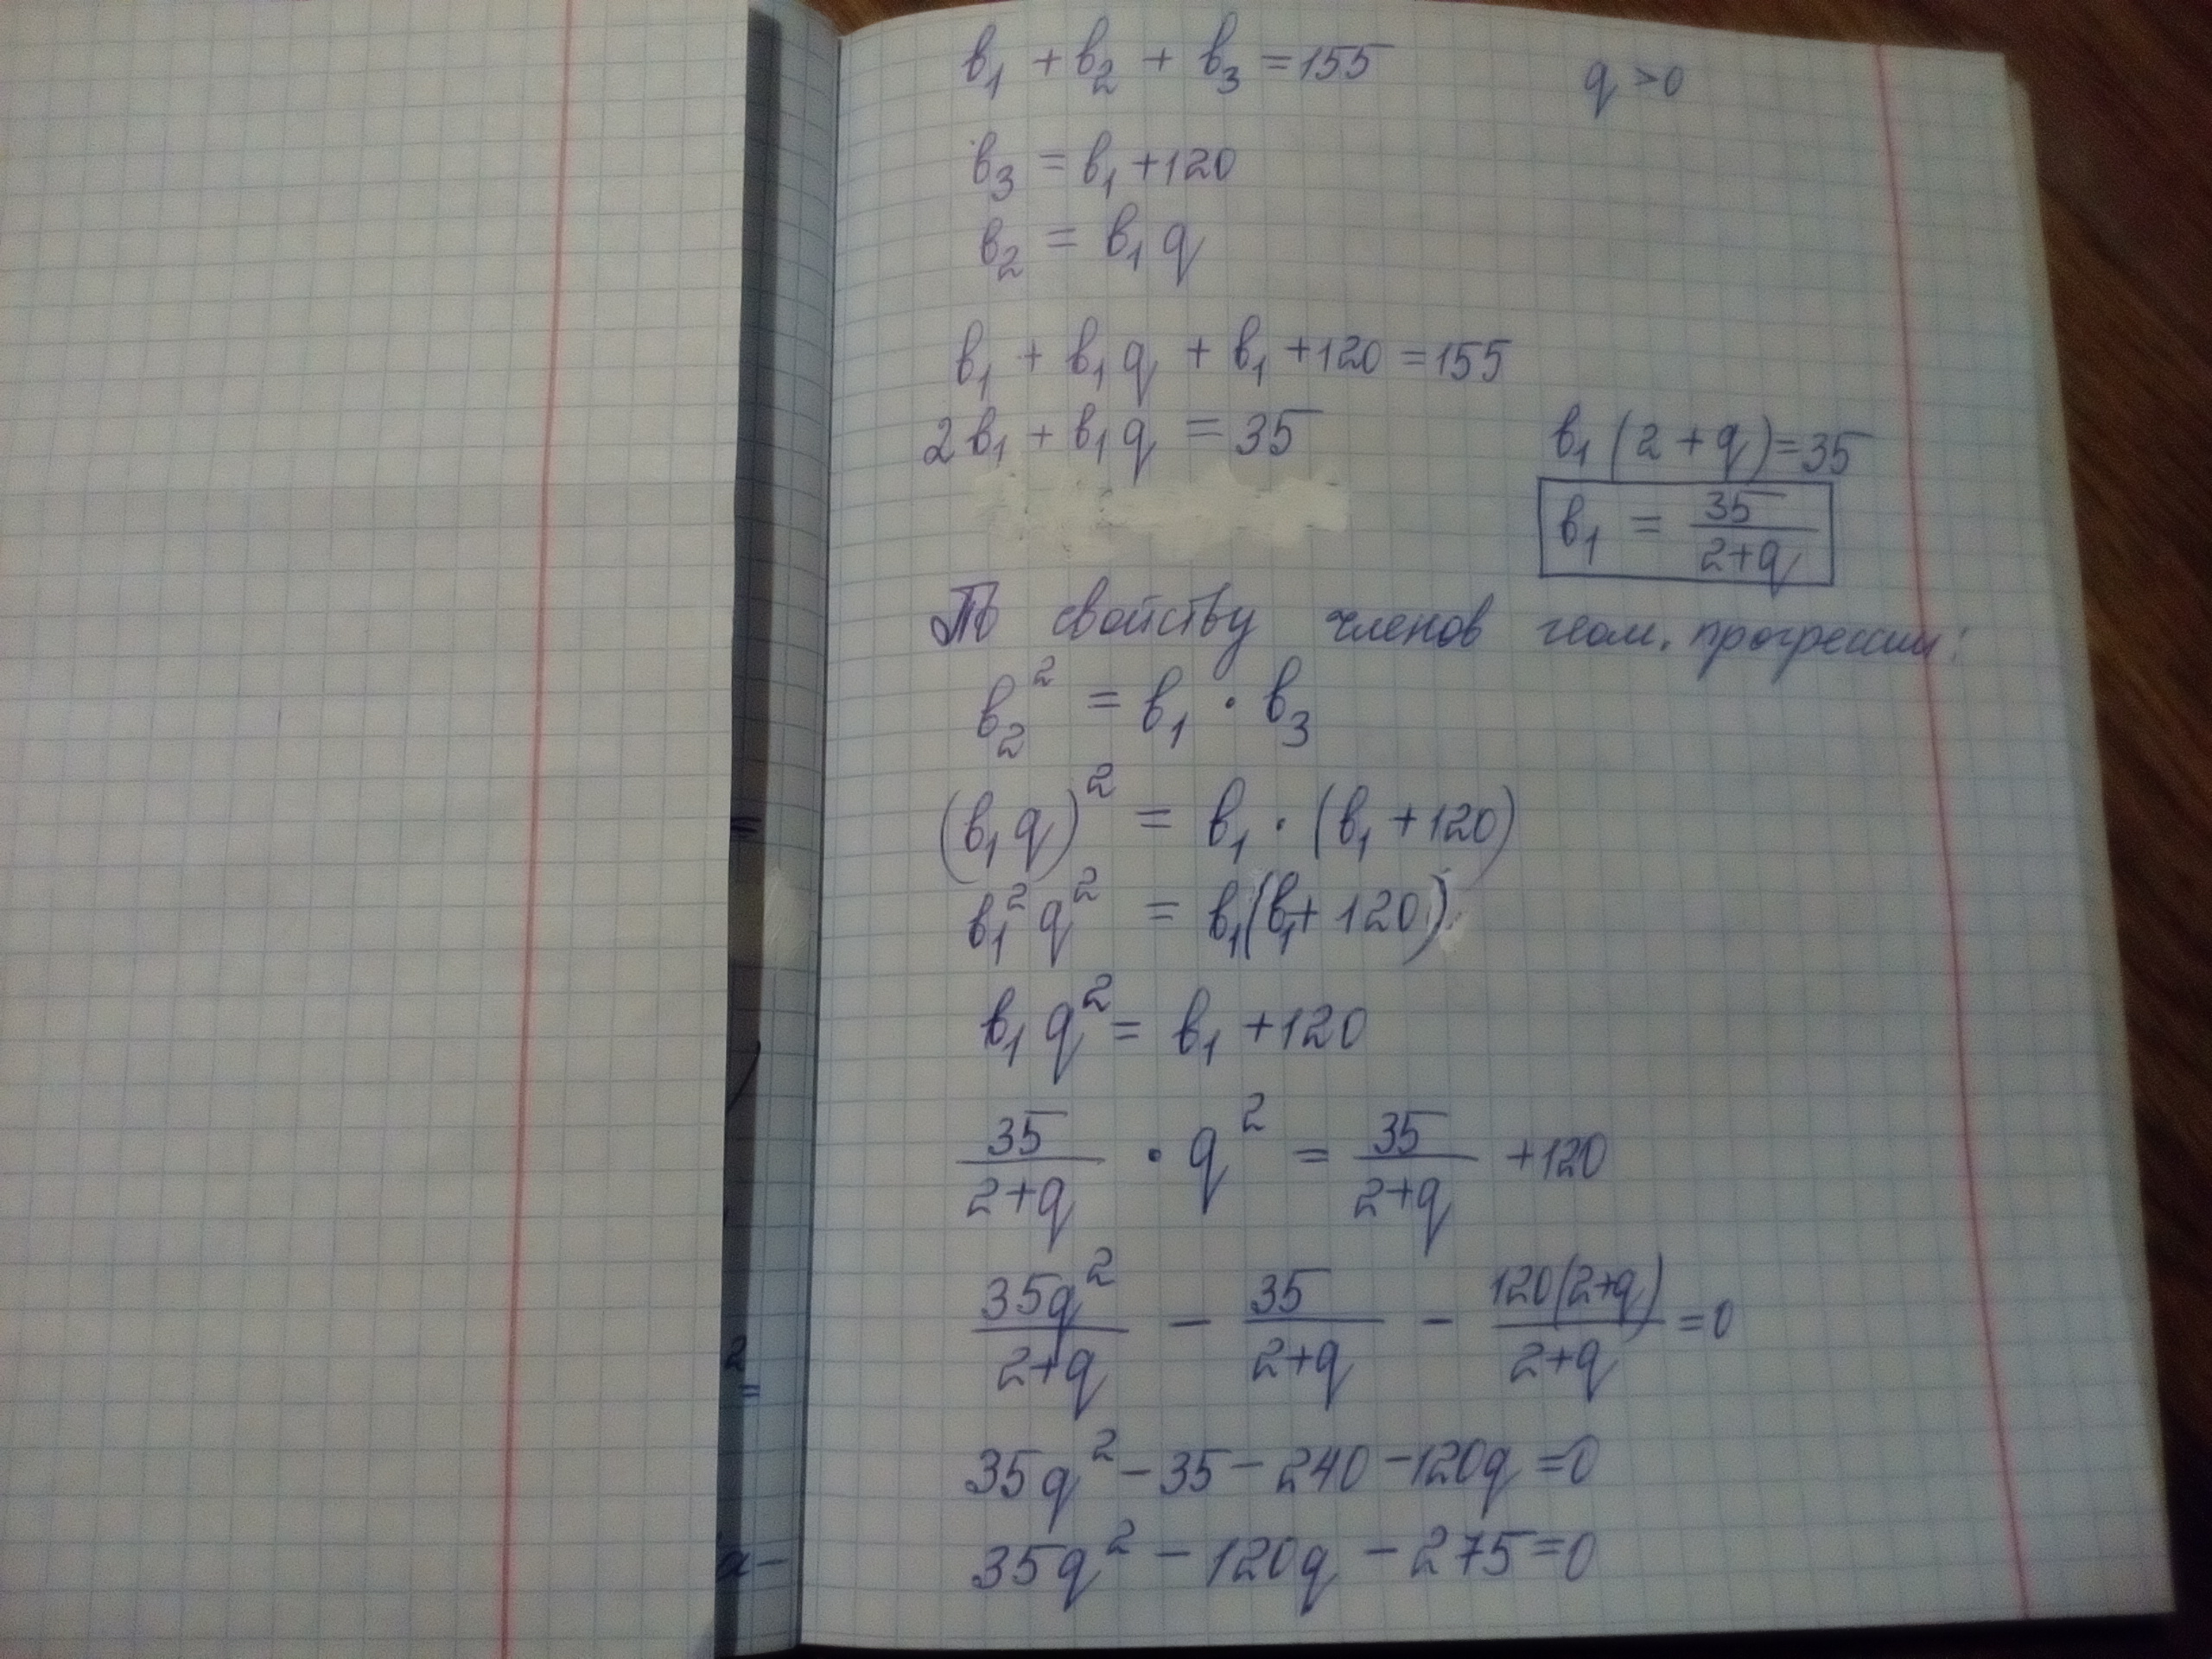 b₁ + b₂ + b₃ = 155
q > 0
b₃ = b₁ + 120
b₂ = b₁ q
b₁ + b₁ q + b₁ + 120 = 155
2b₁ + b₁ q = 35
b₁ (2 + q) = 35
b₁ = 35/(2+q)
По свойству членов геом. прогрессии:
b₂² = b₁ · b₃
(b₁ q)² = b₁ · (b₁ + 120)
b₁² q² = b₁(b₁ + 120)
b₁ q² = b₁ + 120
35/(2+q) · q² = 35/(2+q) + 120
35q²/(2+q) − 35/(2+q) − 120(2+q)/(2+q) = 0
35q² − 35 − 240 − 120q = 0
35q² − 120q − 275 = 0